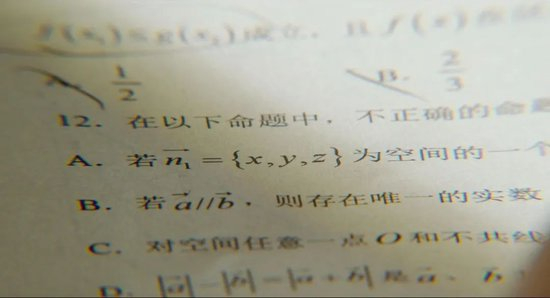 f(x₁)≤g(x₂)成立,且f(x)在
A. 1/2 B. 2/3
12. 在以下命题中,不正确的命题
A. 若n₁⃗={x,y,z}为空间的一个
B. 若a⃗//b⃗,则存在唯一的实数
C. 对空间任意一点O和不共线
D. |a⃗|-|b⃗|=|a⃗+b⃗|是a⃗、b⃗